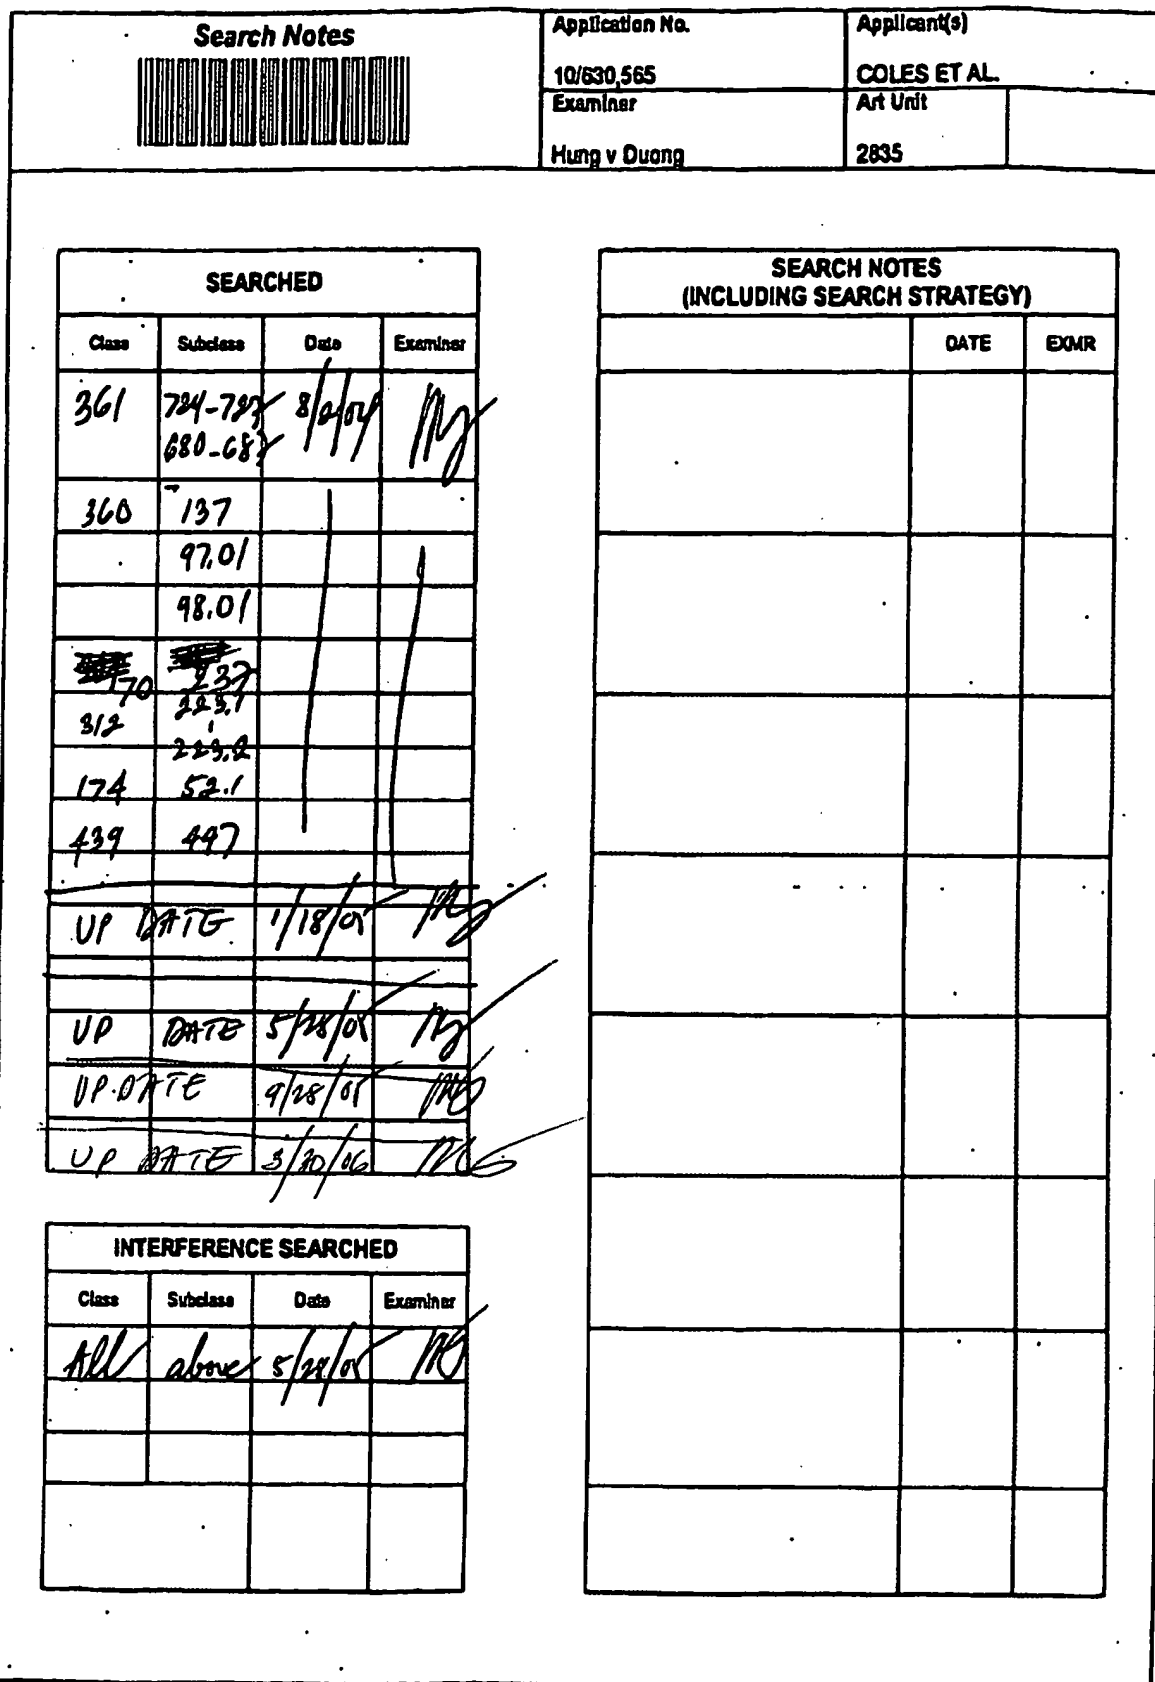 Search Notes
Application No.
Applicant(s)
10/630,565
COLES ET AL.
Examiner
Art Unit
Hung v Duong
2835
SEARCHED
Class Subclass Date Examiner
361 724-727 8/2/04
680-687
360 137
97.01
98.01
170 237
312 223.1
223.2
174 52.1
439 497
UP DATE 1/18/05
UP DATE 5/28/05
UP.DATE 9/28/05
UP DATE 3/30/06
INTERFERENCE SEARCHED
Class Subclass Date Examiner
All above 5/28/05
SEARCH NOTES
(INCLUDING SEARCH STRATEGY)
DATE EXMR